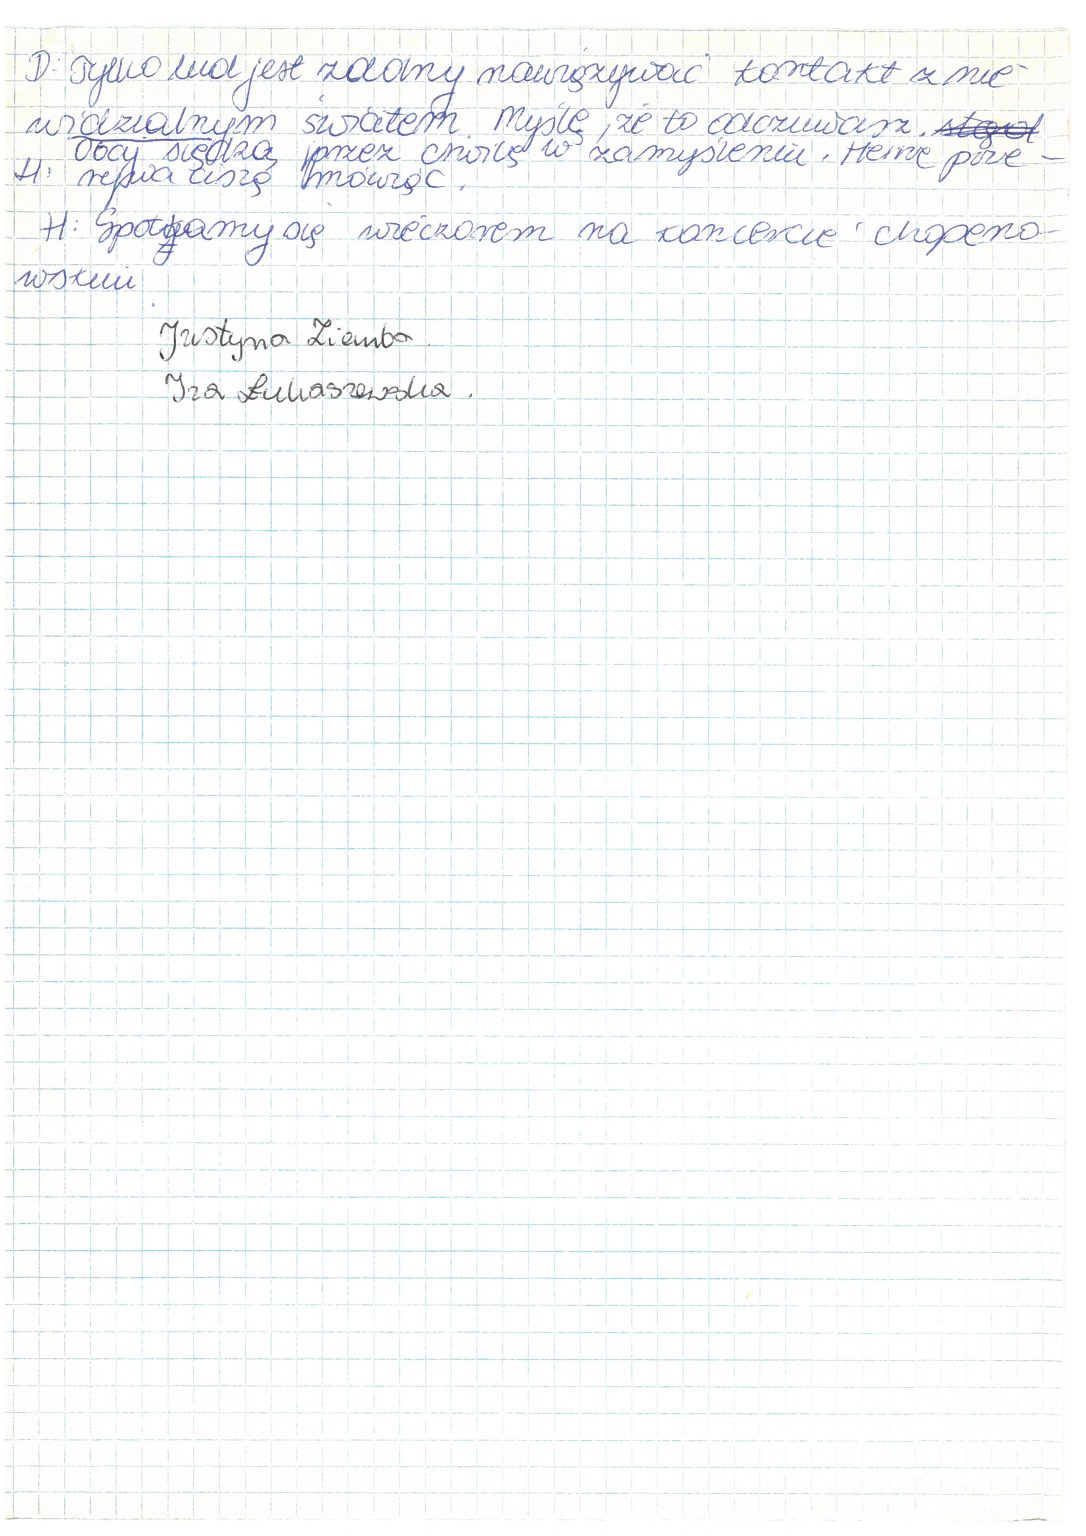 D: Tylko lud jest zdolny nawiązywać kontakt z nie-
widzialnym światem. Myślę, że to odczuwasz. stąd
Obaj siedzą przez chwilę w zamyśleniu. Heine prze-
H: rywa ciszę mówiąc.
H: Spotkamy się wieczorem na koncercie chopeno-
wskim
Justyna Ziemba.
Iza Łukaszewska.